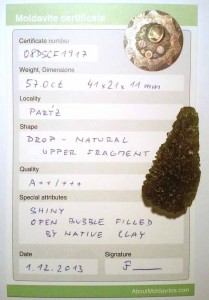 Moldavite certificate
Certificate number
08DSCF1917
Weight, Dimensions
57.0ct 41x21x11mm
Locality
PARÍZ
Shape
DROP - NATURAL
UPPER FRAGMENT
Quality
A++/+++
Special attributes
SHINY
OPEN BUBBLE FILLED
BY NATIVE CLAY
Date
Signature
1.12.2013
AboutMoldavites.com